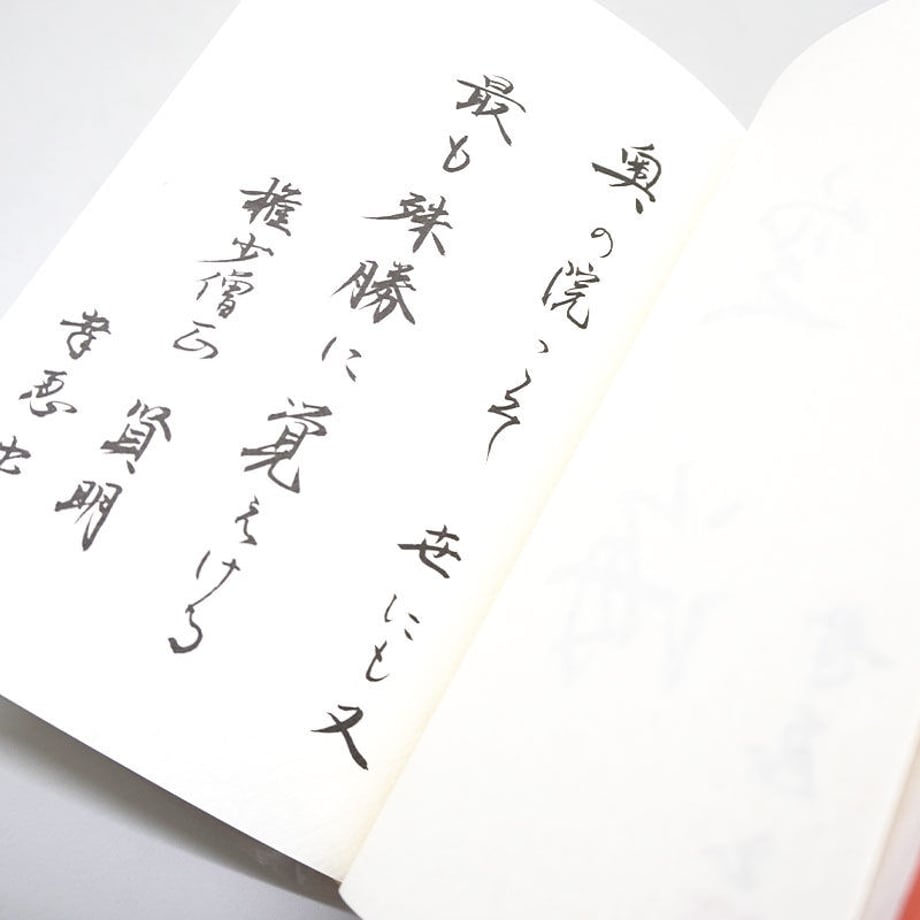 奥の院こそ 世にも又
最も殊勝に覚えける
権少僧正 賢明